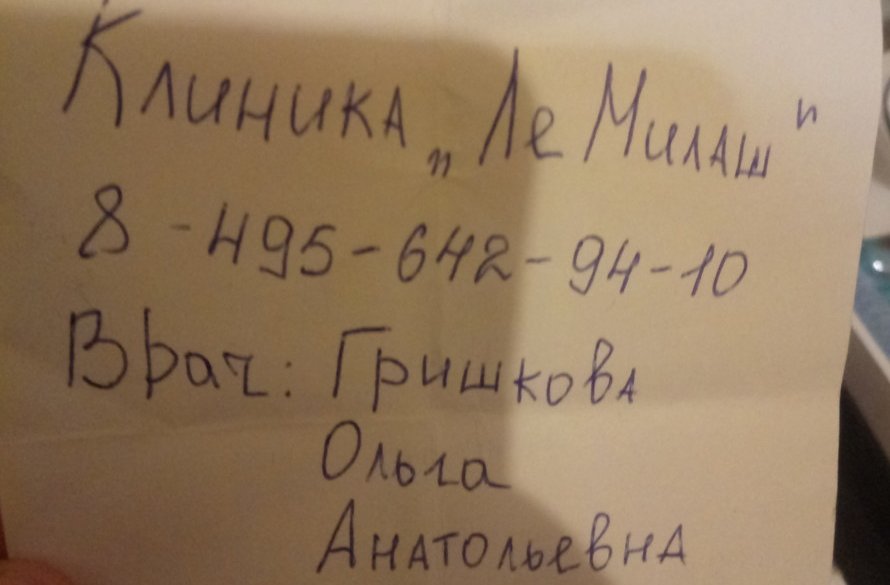 Клиника „Ле Милаш"
8-495-642-94-10
Врач: Гришкова
Ольга
Анатольевна